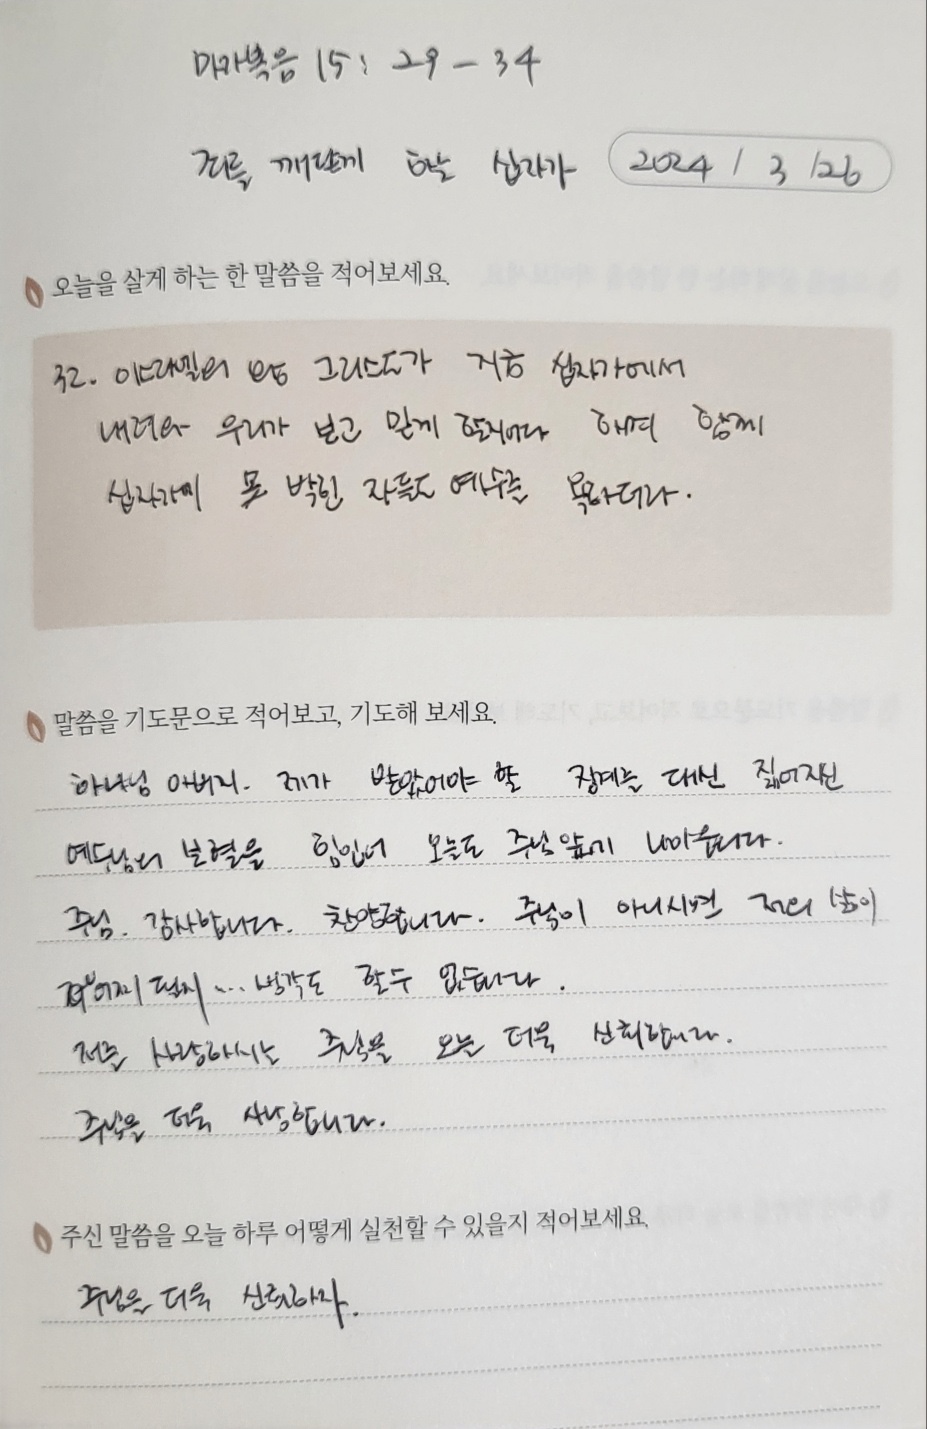 마가복음 15: 29-34
죄를 깨닫게 하는 십자가 2024 / 3 /26
오늘을 살게 하는 한 말씀을 적어보세요.
32. 이스라엘의 왕 그리스도가 지금 십자가에서
내려와 우리가 보고 믿게 할지어다 하며 함께
십자가에 못 박힌 자들도 예수를 욕하더라.
말씀을 기도문으로 적어보고, 기도해 보세요.
하나님 아버지. 제가 받았어야 할 징계를 대신 짊어지신
예수님의 보혈을 힘입어 오늘도 주님 앞에 나아옵니다.
주님. 감사합니다. 찬양합니다. 주님이 아니시면 저의 삶이
어찌 될지... 생각도 할 수 없습니다.
저를 사랑하시는 주님을 오늘 더욱 신뢰합니다.
주님을 더욱 사랑합니다.
주신 말씀을 오늘 하루 어떻게 실천할 수 있을지 적어보세요.
주님을 더욱 신뢰하자.